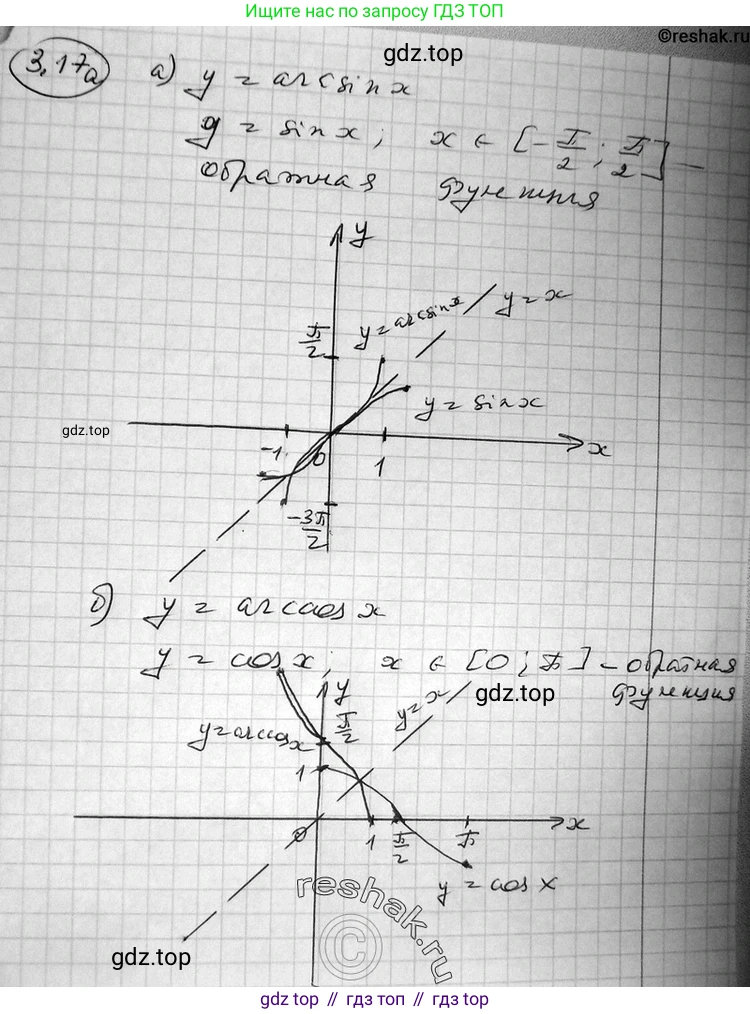 Ищите нас по запросу ГДЗ ТОП
©reshak.ru
gdz.top
3.17а
а) y = arcsin x
y = sin x; x ∈ [-π/2; π/2] —
обратная функция
y
y = arcsin x
y = x
π/2
y = sin x
gdz.top
-1
0
1
x
-3π/2
б) y = arccos x
y = cos x; x ∈ [0; π] – обратная
функция
gdz.top
y
y = x
y = arccos x
π/2
1
0
1
π/2
π
x
y = cos x
reshak.ru
©
gdz.top
gdz.top // гдз топ // gdz.top